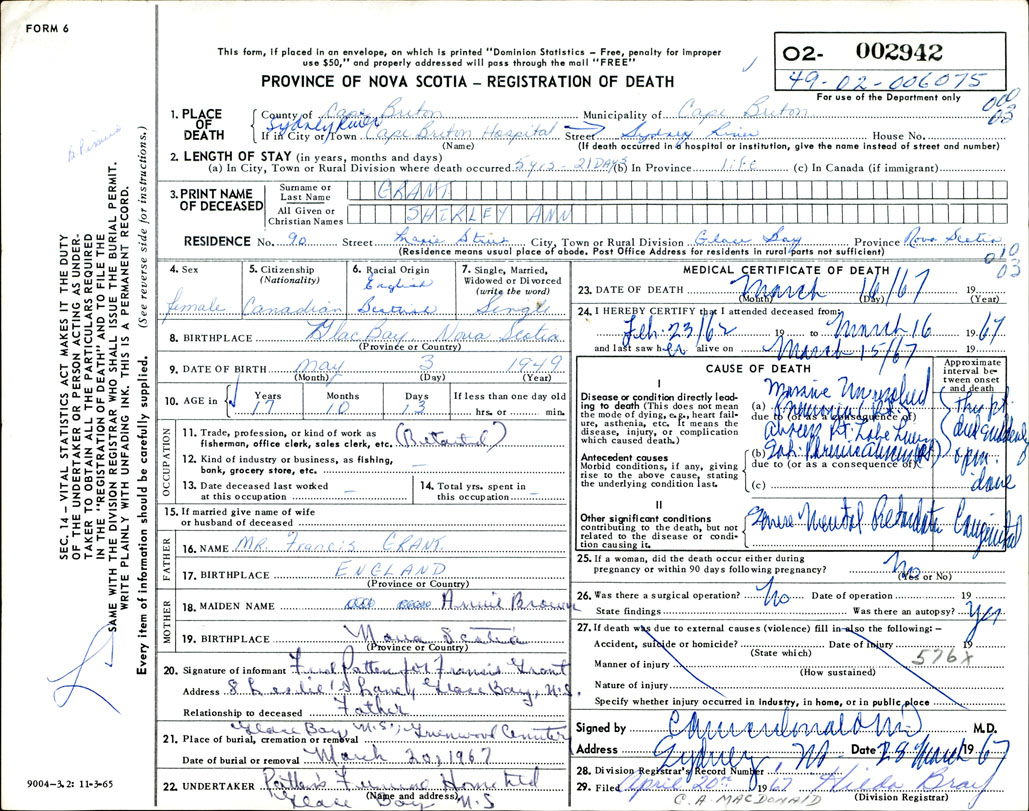 FORM 6
This form, if placed in an envelope, on which is printed "Dominion Statistics – Free, penalty for improper
use $50," and properly addressed will pass through the mail "FREE"
PROVINCE OF NOVA SCOTIA – REGISTRATION OF DEATH
02- 002942
49-02-006075
For use of the Department only
000
03
1. PLACE OF DEATH
County of Cape Breton Municipality of Cape Breton
Sydney River
If in City or Town Cape Breton Hospital Street Sydney River House No.
(Name) (If death occurred in a hospital or institution, give the name instead of street and number)
2. LENGTH OF STAY (in years, months and days)
(a) In City, Town or Rural Division where death occurred 5 yrs - 21 DAYS (b) In Province life (c) In Canada (if immigrant)
3. PRINT NAME OF DECEASED
Surname or Last Name GRANT
All Given or Christian Names SHIRLEY ANN
RESIDENCE No. 90 Street City, Town or Rural Division Glace Bay Province Nova Scotia
(Residence means usual place of abode. Post Office Address for residents in rural parts not sufficient)
010
03
4. Sex female
5. Citizenship (Nationality) Canadian
6. Racial Origin English
7. Single, Married, Widowed or Divorced (write the word) Single
8. BIRTHPLACE Glac Bay, Nova Scotia
(Province or Country)
9. DATE OF BIRTH May 3 1949
(Month) (Day) (Year)
10. AGE in Years 17 Months 10 Days 13 If less than one day old hrs. or min.
OCCUPATION
11. Trade, profession, or kind of work as fisherman, office clerk, sales clerk, etc. (Retarded)
12. Kind of industry or business, as fishing, bank, grocery store, etc. –
13. Date deceased last worked at this occupation –
14. Total yrs. spent in this occupation –
15. If married give name of wife or husband of deceased
FATHER
16. NAME MR. Francis GRANT
17. BIRTHPLACE ENGLAND
(Province or Country)
MOTHER
18. MAIDEN NAME Annie Brown
19. BIRTHPLACE Nova Scotia
(Province or Country)
20. Signature of informant Fred Patten for Francis Grant
Address 8 Leslie's Lane, Glace Bay, N.S.
Relationship to deceased Father
Glace Bay, N.S., Greenwood Cemetery
21. Place of burial, cremation or removal
Date of burial or removal March 20, 1967
22. UNDERTAKER Patten's Funeral Home Ltd
(Name and address)
Glace Bay N.S
MEDICAL CERTIFICATE OF DEATH
23. DATE OF DEATH March 16/67 19
(Month) (Day) (Year)
24. I HEREBY CERTIFY that I attended deceased from:
Feb. 23/62 19 to March 16 1967
and last saw her alive on March 15/67 19
CAUSE OF DEATH
Approximate interval between onset and death
I
Disease or condition directly leading to death (This does not mean the mode of dying, e.g., heart failure, asthenia, etc. It means the disease, injury, or complication which caused death.)
(a) Massive Unresolved
Pneumonia (Rt.)
due to (or as a consequence of)
Abscess Rt. Lobe Lung
Antecedent causes
Morbid conditions, if any, giving rise to the above cause, stating the underlying condition last.
(b)
due to (or as a consequence of)
(c)
II
Other significant conditions
contributing to the death, but not related to the disease or condition causing it.
Severe Mental Retardate Congenital
25. If a woman, did the death occur either during pregnancy or within 90 days following pregnancy? No
(Yes or No)
26. Was there a surgical operation? No Date of operation 19
State findings Was there an autopsy? Yes
27. If death was due to external causes (violence) fill in also the following: –
Accident, suicide or homicide? Date of Injury 19
(State which)
576X
Manner of injury
(How sustained)
Nature of injury
Specify whether injury occurred in Industry, in home, or in public place
Signed by M.D.
Address Sydney, Date 28 March 1967
28. Division Registrar's Record Number
29. Filed April 20th 1967 Hilda Bray
(Division Registrar)
C. A. MACDONALD
SEC. 14 – VITAL STATISTICS ACT MAKES IT THE DUTY
OF THE UNDERTAKER OR PERSON ACTING AS UNDER-
TAKER TO OBTAIN ALL THE PARTICULARS REQUIRED
IN THE "REGISTRATION OF DEATH" AND TO FILE THE
SAME WITH THE DIVISION REGISTRAR WHO SHALL ISSUE THE BURIAL PERMIT.
WRITE PLAINLY WITH UNFADING INK. THIS IS A PERMANENT RECORD.
Every item of information should be carefully supplied. (See reverse side for instructions.)
9004-3.2: 11-3-65